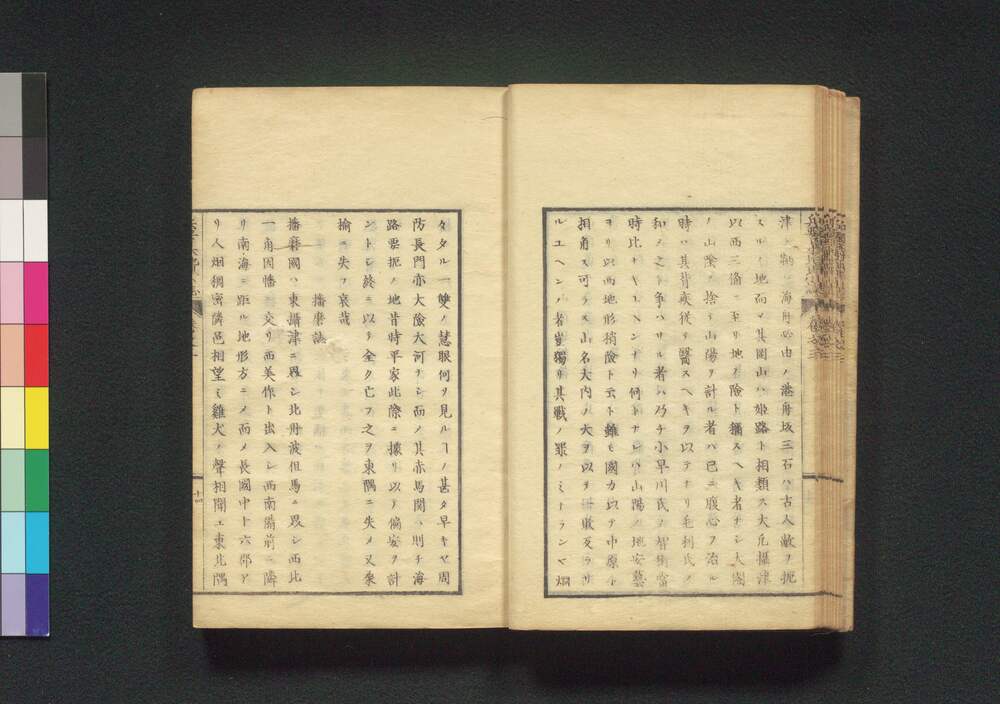 津ノ鞆ハ海舟必由ノ港舟坂三石ハ古人敵ヲ扼
スルノ地而〆其岡山ハ姫路ト相類ス大凡攝津
以西三備ニ至リ地ノ險ト稱スヘキ者ナシ大閤
ノ山陰ヲ捨テ山陽ヲ計ル者ハ已ニ腹心ヲ治ル
時ハ其背疾從テ醫スヘキヲ以テナリ毛利氏ノ
和之ト争ハサル者ハ乃チ小早川氏ノ智術當
時比ナキユヘンナリ何トナレハ山陽ノ地安藝
ヨリ以西地形稍險ト云ト雖モ國力以テ中原ト
相角ス可ラス山名大内ノ大ヲ以テ敗又ラサ
ルユヘンノ者豈獨リ其戰ノ罪ノミトランマ炯
タタル一雙ノ慧眼何ヲ見ルヿノ甚タ早キヤ周
防長門亦大險大河ナシ而〆其赤馬關ハ則チ海
路要扼ノ地昔時平家此際ニ據リ以テ偏安ヲ計
ントシ終ニ以テ全ク亡フ之ヲ東隅ニ失メ又桑
揄ニ失フ哀哉
播磨誌
播磨國ハ東攝津ニ界シ北丹波但馬ニ界シ西北
一角因幡ニ交リ西美作ト出入シ西南備前ニ隣
リ南海ニ距ル地形方ニメ而〆長國中ト六郡ア
リ人烟稠密隣邑相望ミ雞犬ノ聲相聞ユ東北隅
十四